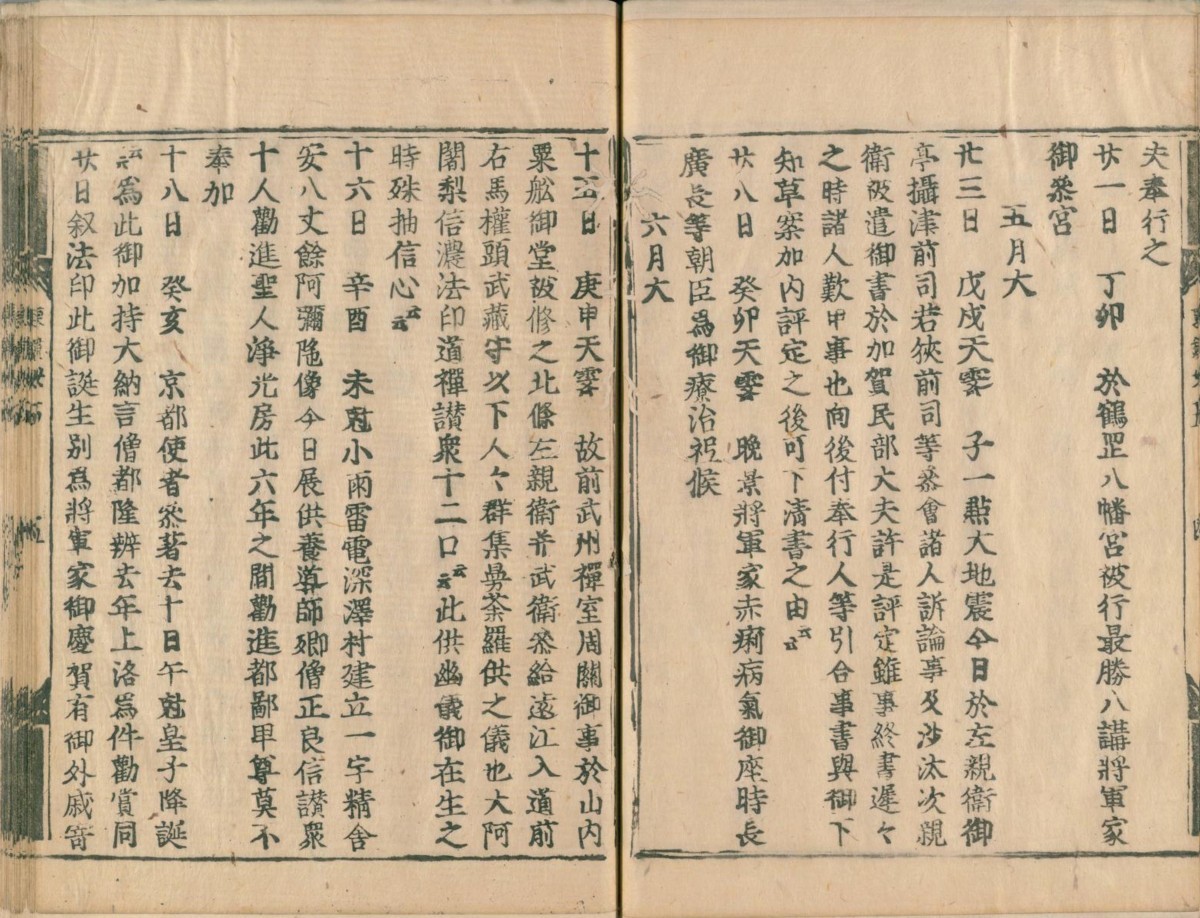 夫奉行之
廿一日　丁卯　於鶴岳八幡宮被行最勝八講將軍家
御叅宮
五月大
廿三日　戊戌天霽　子一㸃大地震今日於左親衛御
亭攝津前司若狹前司等叅會諸人訴論事及沙汰次親
衛被遣御書於加賀民部大夫許是評定雖事終書遲々
之時諸人歎申事也向後付奉行人等引合事書與御下
知草案加內評定之後可下淸書之由云云
廿八日　癸卯天霽　晚景將軍家赤痢病氣御座時長
廣長等朝臣爲御療治祗候
六月大
十五日　庚申天霽　故前武州禪室周關御事於山內
粟船御堂被修之北條左親衛并武衛叅給遠江入道前
右馬權頭武藏守以下人々群集曼荼羅供之儀也大阿
闍梨信濃法印道禪讃衆十二口云云此供幽儀御在生之
時殊抽信心云云
十六日　辛酉　未尅小雨雷電深澤村建立一宇精舍
安八丈餘阿彌陁像今日展供養導師卿僧正良信讃衆
十人勸進聖人淨光房此六年之間勸進都鄙甲尊莫不
奉加
十八日　癸亥　京都使者叅著去十日午尅皇子降誕
云云爲此御加持大納言僧都隆辨去年上洛爲件勸賞同
廿日叙法印此御誕生別爲將軍家御慶賀有御外戚寄